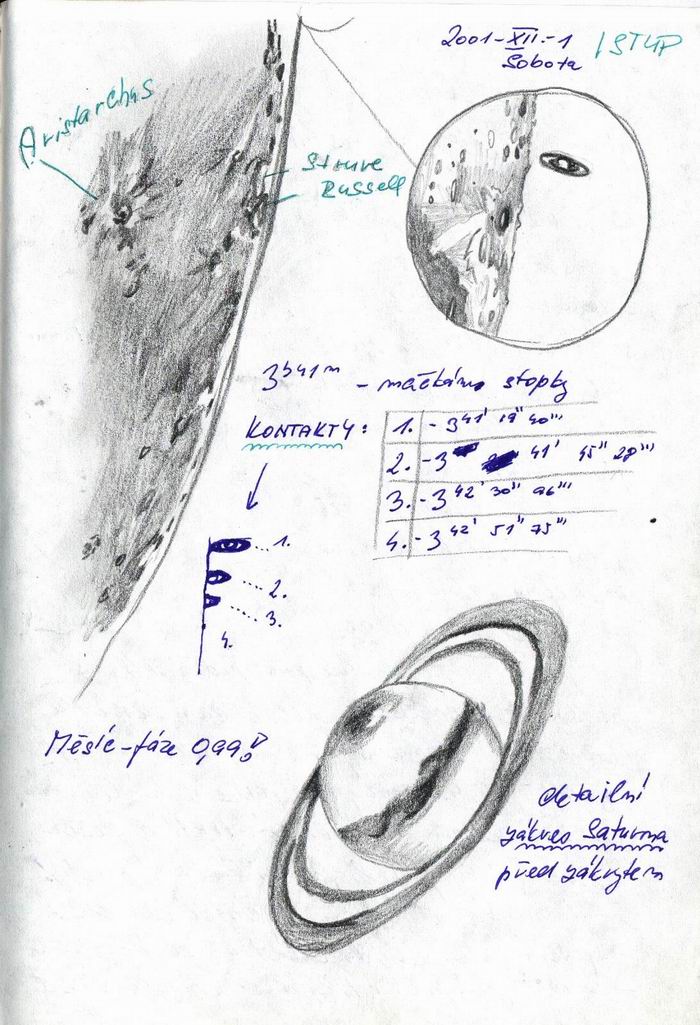 2001-XII.-1
Sobota
VSTUP
Aristarchus
Struve
Russell
3h41m - mačkáno stopky
KONTAKTY:
1. - 3 41' 19'' 40'''
2. - 3 41' 45'' 28'''
3. - 3 42' 30'' 96'''
4. - 3 42' 51'' 75'''
1.
2.
3.
4.
Měsíc-fáze 0,99
detailní
zákres Saturna
před zákrytem